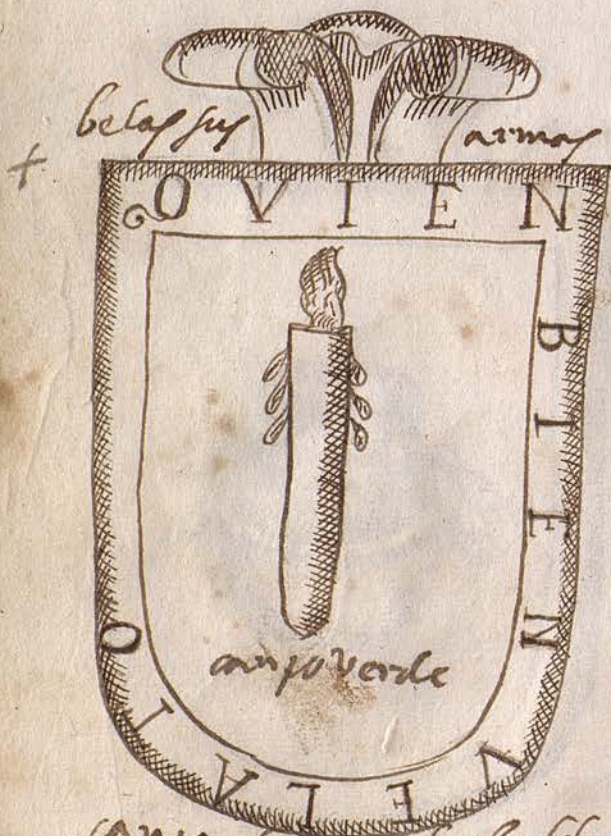 belas sus armas
O VIEN
BIEN
VELAIO
campo verde